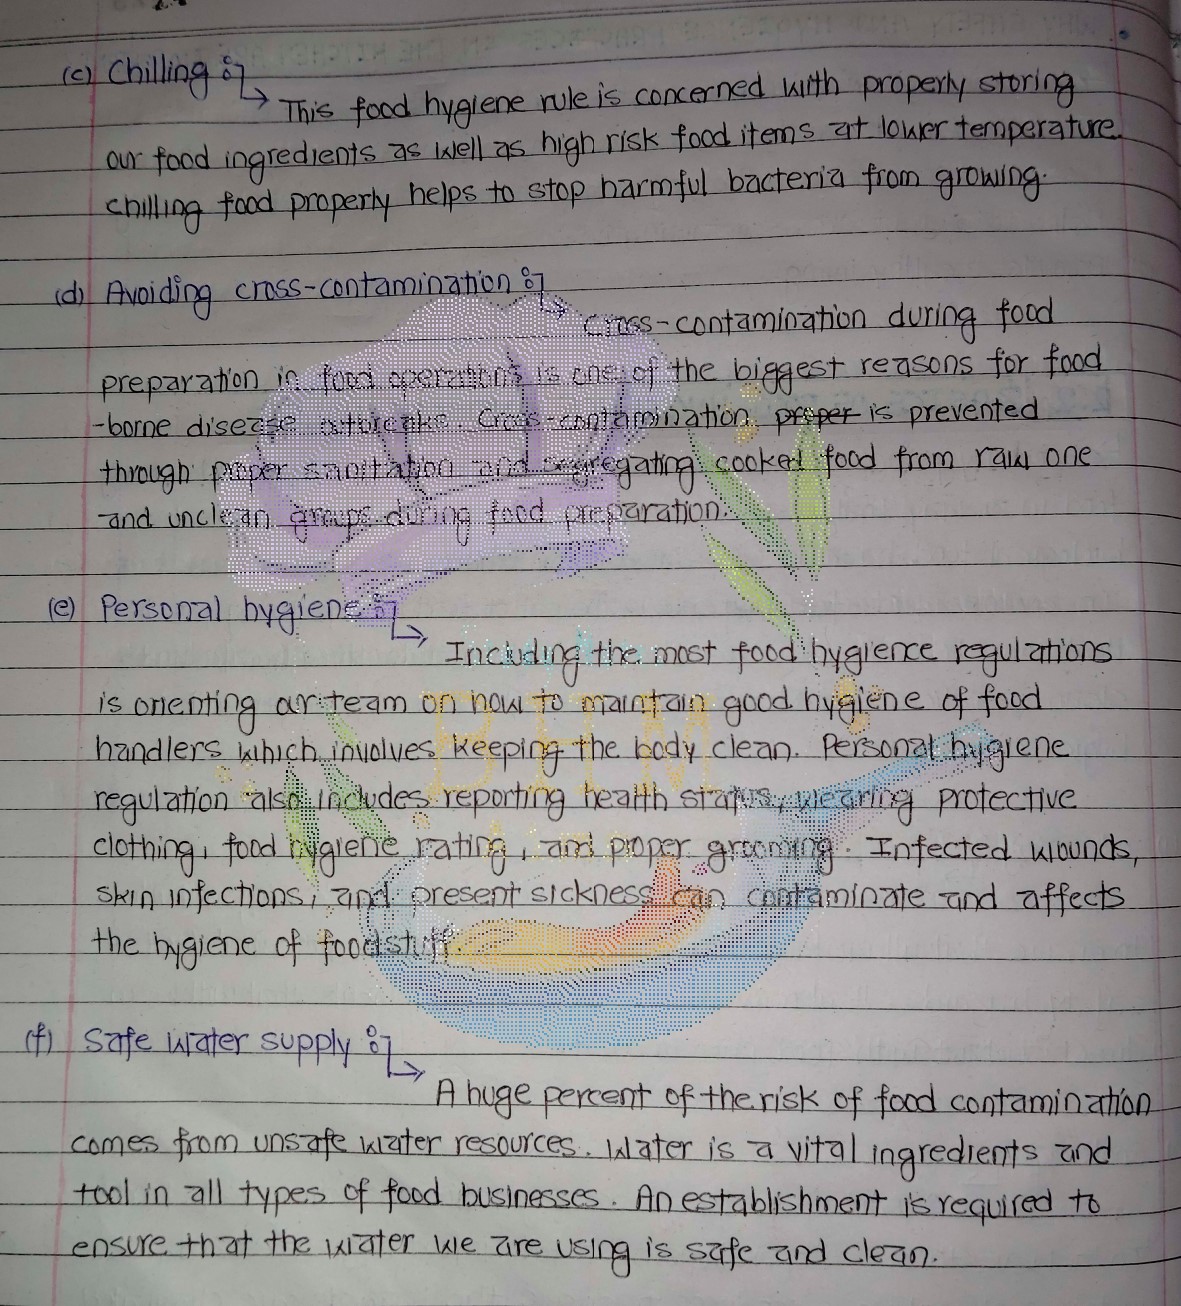 (c) Chilling :-
This food hygiene rule is concerned with properly storing
our food ingredients as well as high risk food items at lower temperature.
chilling food properly helps to stop harmful bacteria from growing.
(d) Avoiding cross-contamination :-
Cross-contamination during food
preparation in food operations is one of the biggest reasons for food
-borne disease outbreaks. Cross-contamination proper is prevented
through proper sanitation and segregating cooked food from raw one
and unclean groups during food preparation.
(e) Personal hygiene :-
Including the most food hygience regulations
is orienting our team on how to maintain good hygiene of food
handlers which involves keeping the body clean. Personal hygiene
regulation also includes reporting health status, wearing protective
clothing, food hygiene rating, and proper grooming. Infected wounds,
skin infections, and present sickness can contaminate and affects
the hygiene of foodstuff.
BHM
(f) Safe water supply :-
A huge percent of the risk of food contamination
comes from unsafe water resources. Water is a vital ingredients and
tool in all types of food businesses. An establishment is required to
ensure that the water we are using is safe and clean.